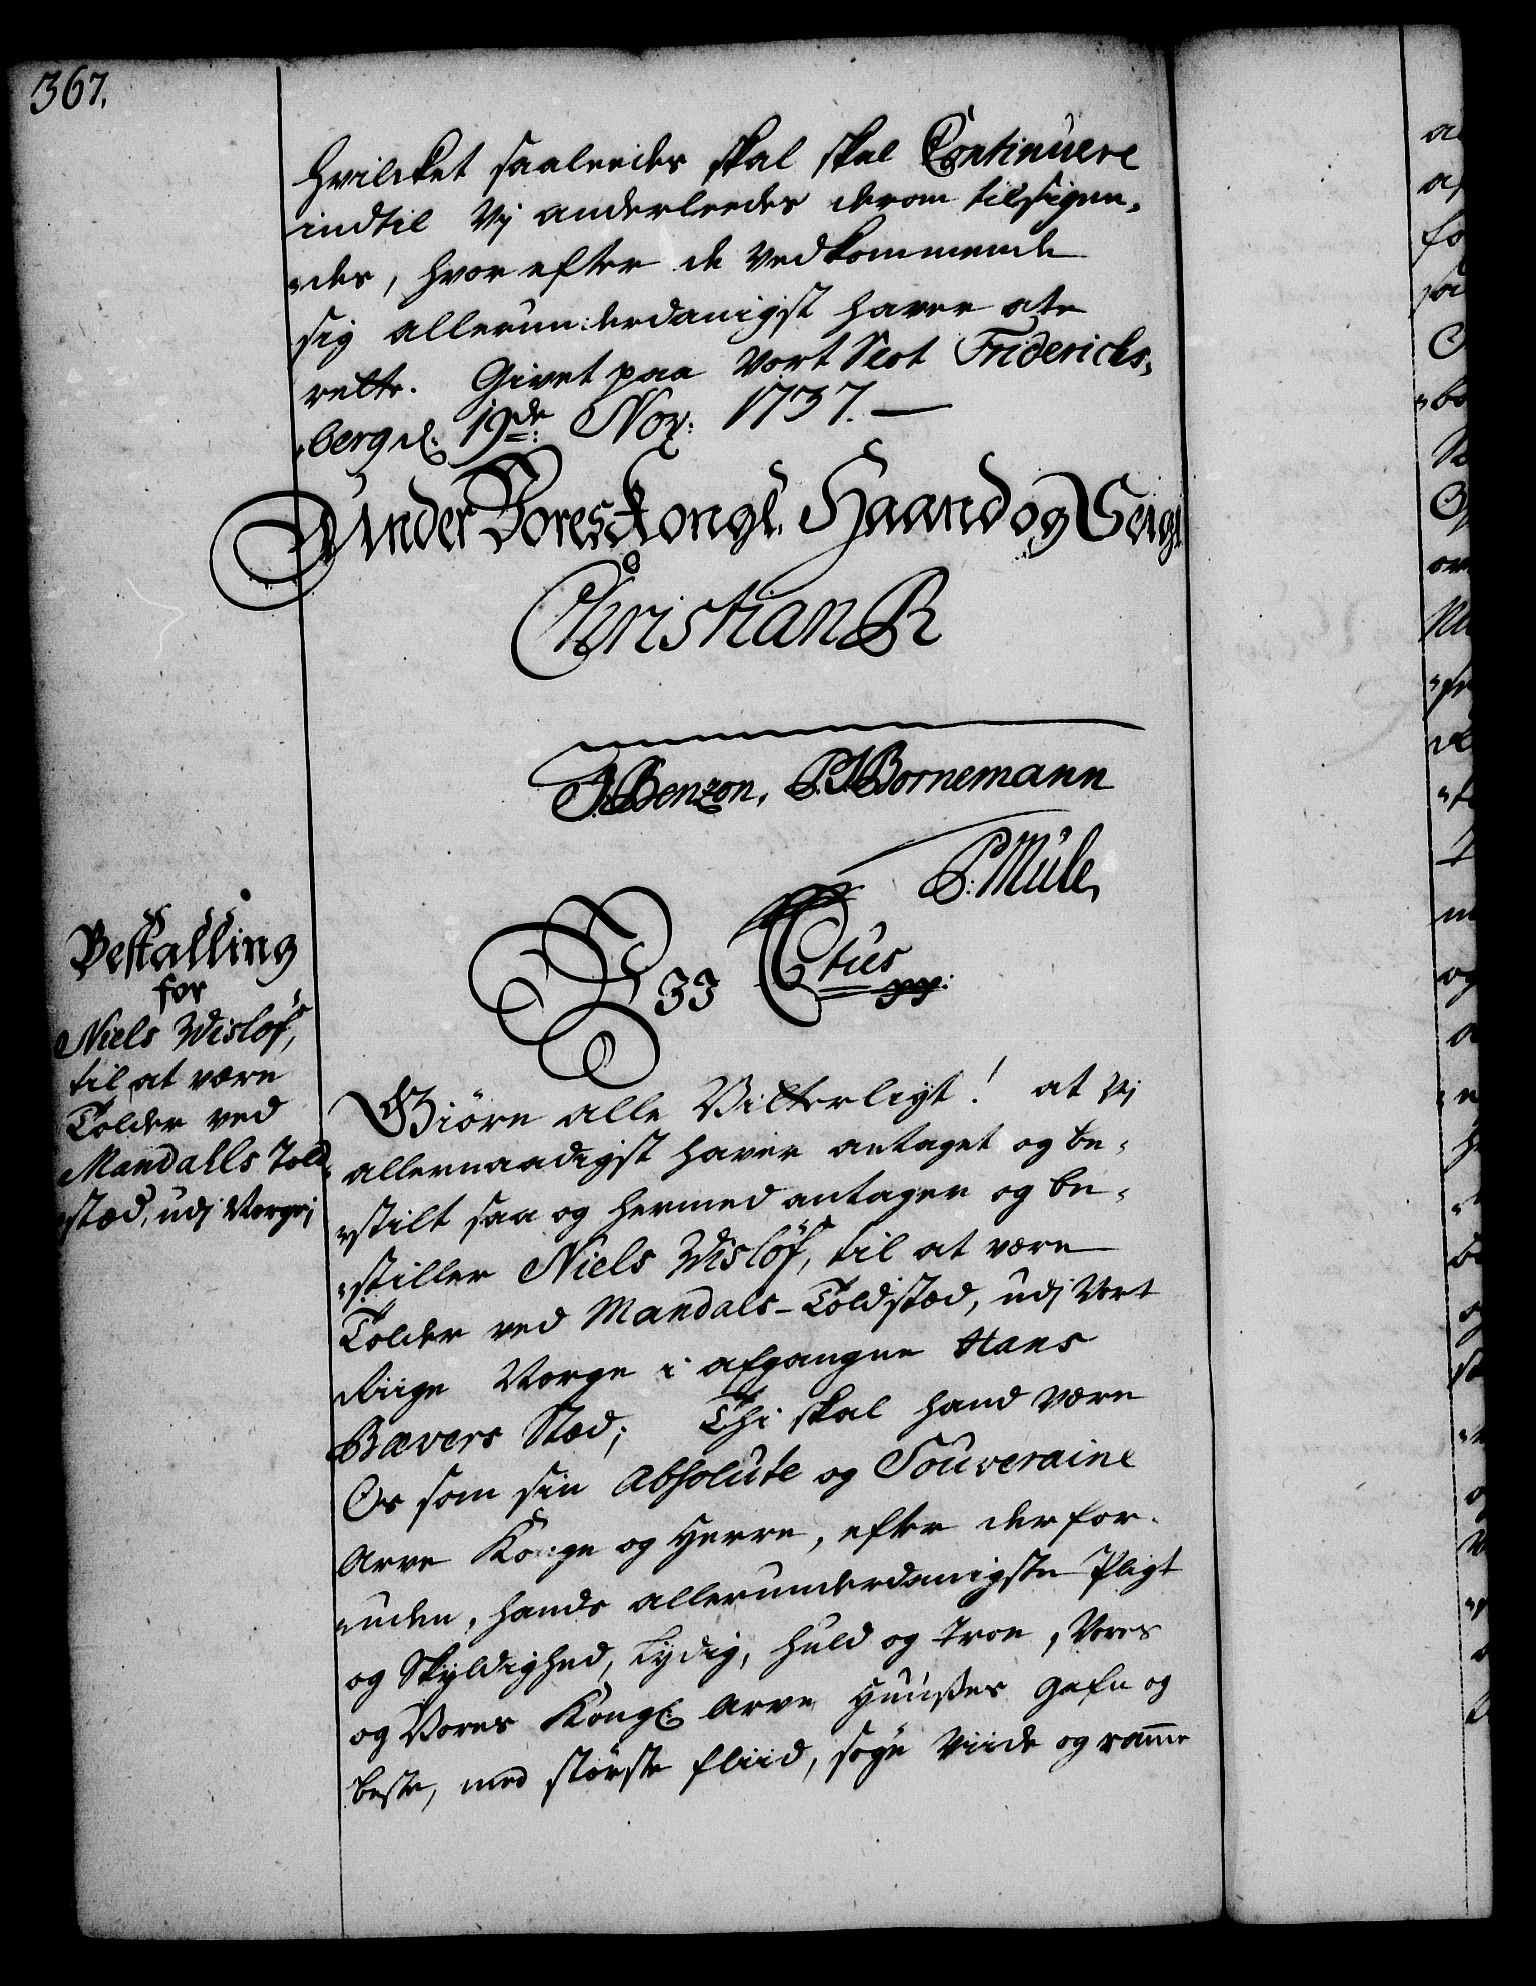 367.
hvilcket saaleedes skal skal Continuere
indtil Vj anderleedes derom tilsigen„
„des, hvor efter de Vedkommende
sig allerunderdanigst haver at
rette. Givet paa Vort Slot Friderichs„
„berg d. 19de: Nov: 1737.
Under Vores Kongl. Haand og Seigl
Christian R
J. Benzon, P. N Bornemann
P: Müle,
Bestalling
for
Niels Wisløf,
til at være
Tolder ved
Mandalls Told„
„stæd, udj Norge
C
Giøre alle Vitterligt! at Vj
allernaadigst haver antaget og be„
„stilt saa og hermed antager og be„
„stiller Niels Wisløf, til at være
Tolder ved Mandals-Toldstæd, udj Vort
Riige Norge i afgangne Hans
Bævers Stæd; Thi skal hand være
Os som sin Absolute og Souveraine
Arve Konge og Herre, efter derfor„
„uden, hands allerunderdanigste Pligt
og Skyldighed, Lydig, huld og troe, Vores
og Vores Kongl: Arve Huußes Gafn og
beste, med største fliid, søge Viide og ramme